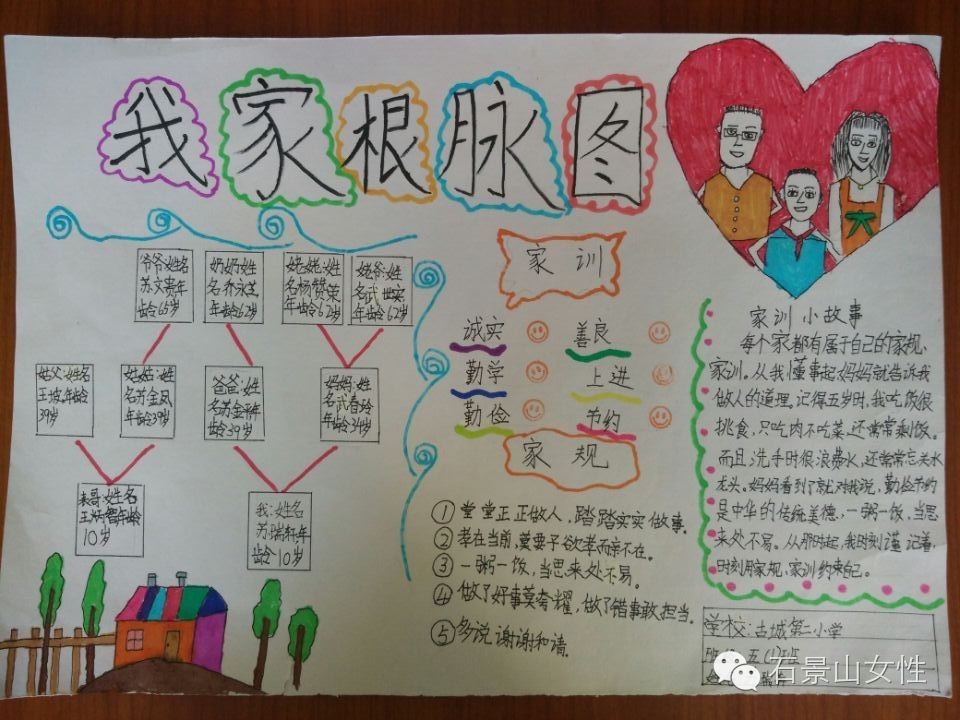 我家根脉图
爷爷:姓名
苏文贵年
龄65岁
奶奶:姓
名乔永芝
年龄62岁
姥姥:姓
名杨赞荣
年龄62岁
姥爷:姓
名武世实
年龄62岁
姑父:姓名
王 年龄
39岁
姑姑:姓
名苏金凤
年龄39岁
爸爸:姓
名苏金平年
龄39岁
妈妈:姓
名武春玲
年龄34岁
表哥:姓名
王炳智年龄
10岁
我:姓名
苏瑞轩年
龄10岁
家训
诚实 善良
勤学 上进
勤俭 节约
家规
①堂堂正正做人,踏踏实实做事。
②孝在当前,莫要子欲孝而亲不在。
③一粥一饭,当思来处不易。
④做了好事莫夸耀,做了错事敢担当。
⑤多说谢谢和请.
家训小故事
每个家都有属于自己的家规、
家训。从我懂事起,妈妈就告诉我
做人的道理。记得五岁时,我吃饭很
挑食,只吃肉不吃菜,还常常剩饭。
而且,洗手时很浪费水,还常常忘关水
龙头。妈妈看到了就对我说,勤俭节约
是中华的传统美德,一粥一饭,当思
来处不易。从那时起,我时刻谨记着,
时刻用家规、家训约束自己。
学校:古城第二小学
班 五(1)班
石景山女性